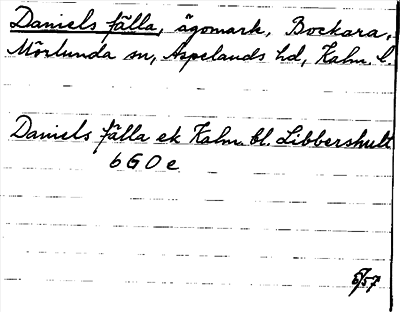 Daniels fälla, ägomark, Bockara,
Mörlunda sn, Aspelands hd, Kalm. l.
Daniels fälla ek Kalm. bl. Libbershult
6 G 0 e
5/57